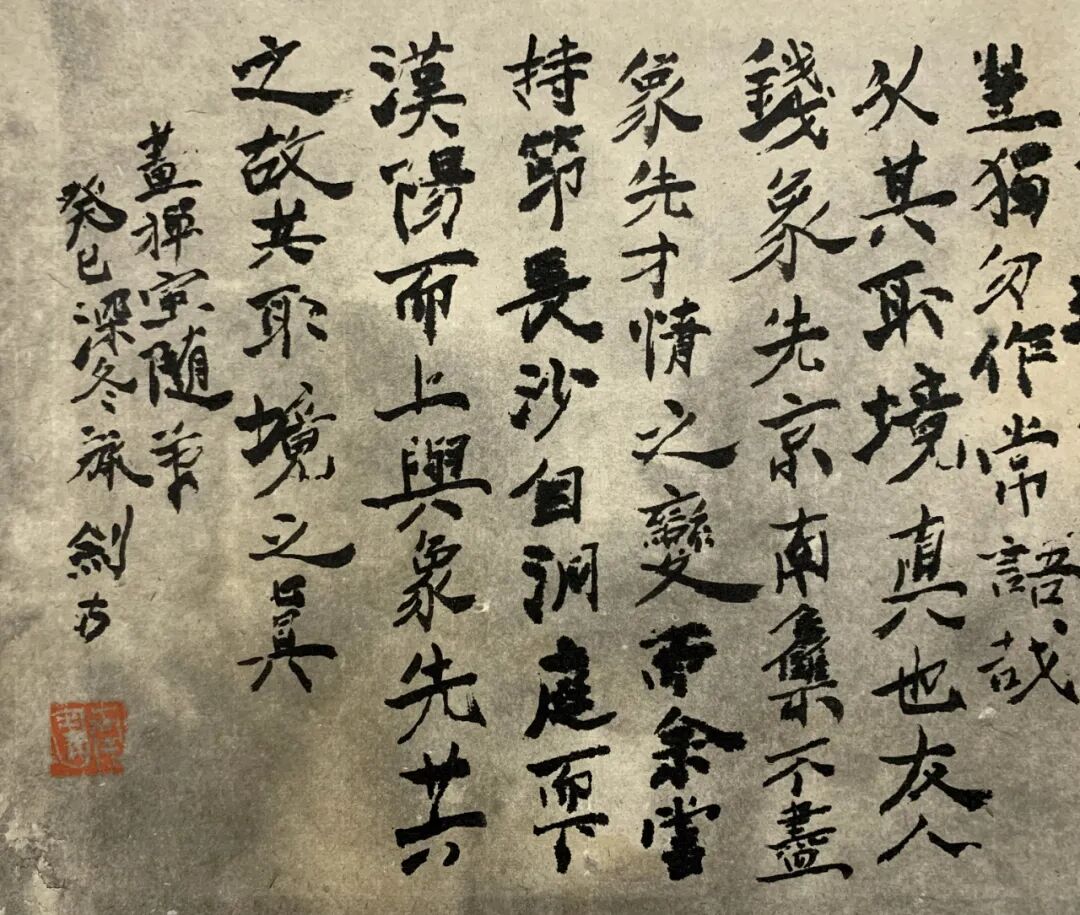 豈獨勿作常語哉
以其取境真也友人
錢象先京南集不盡
象先才情之變而余嘗
持節長沙自洞庭而下
漢陽而上與象先共
之故共取境之真
畫禪室隨筆
癸巳深冬